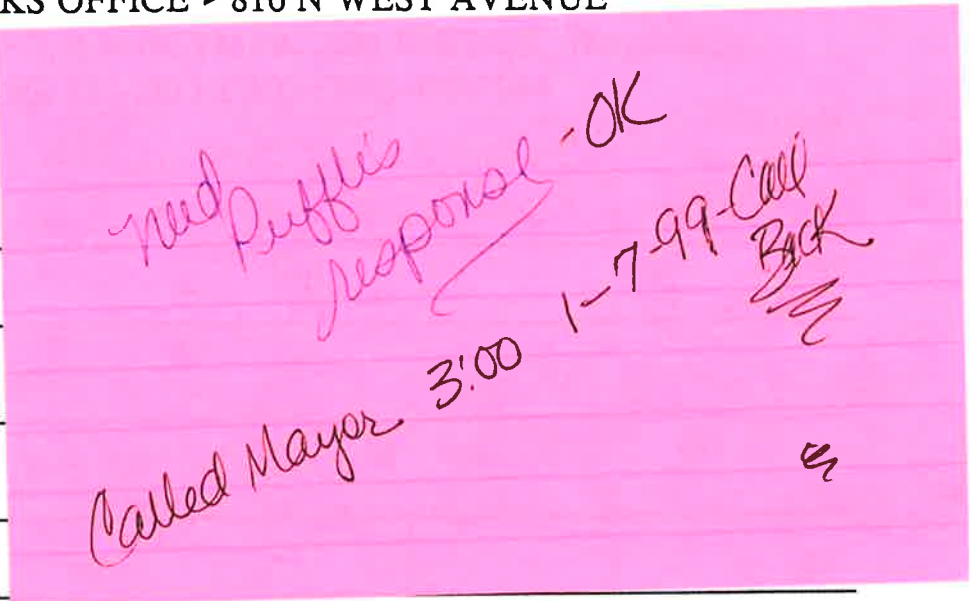 KS OFFICE - 810 N WEST AVENUE
need
Puffi's
response - OK
Called Mayor 3:00 1-7-99-Call
Back